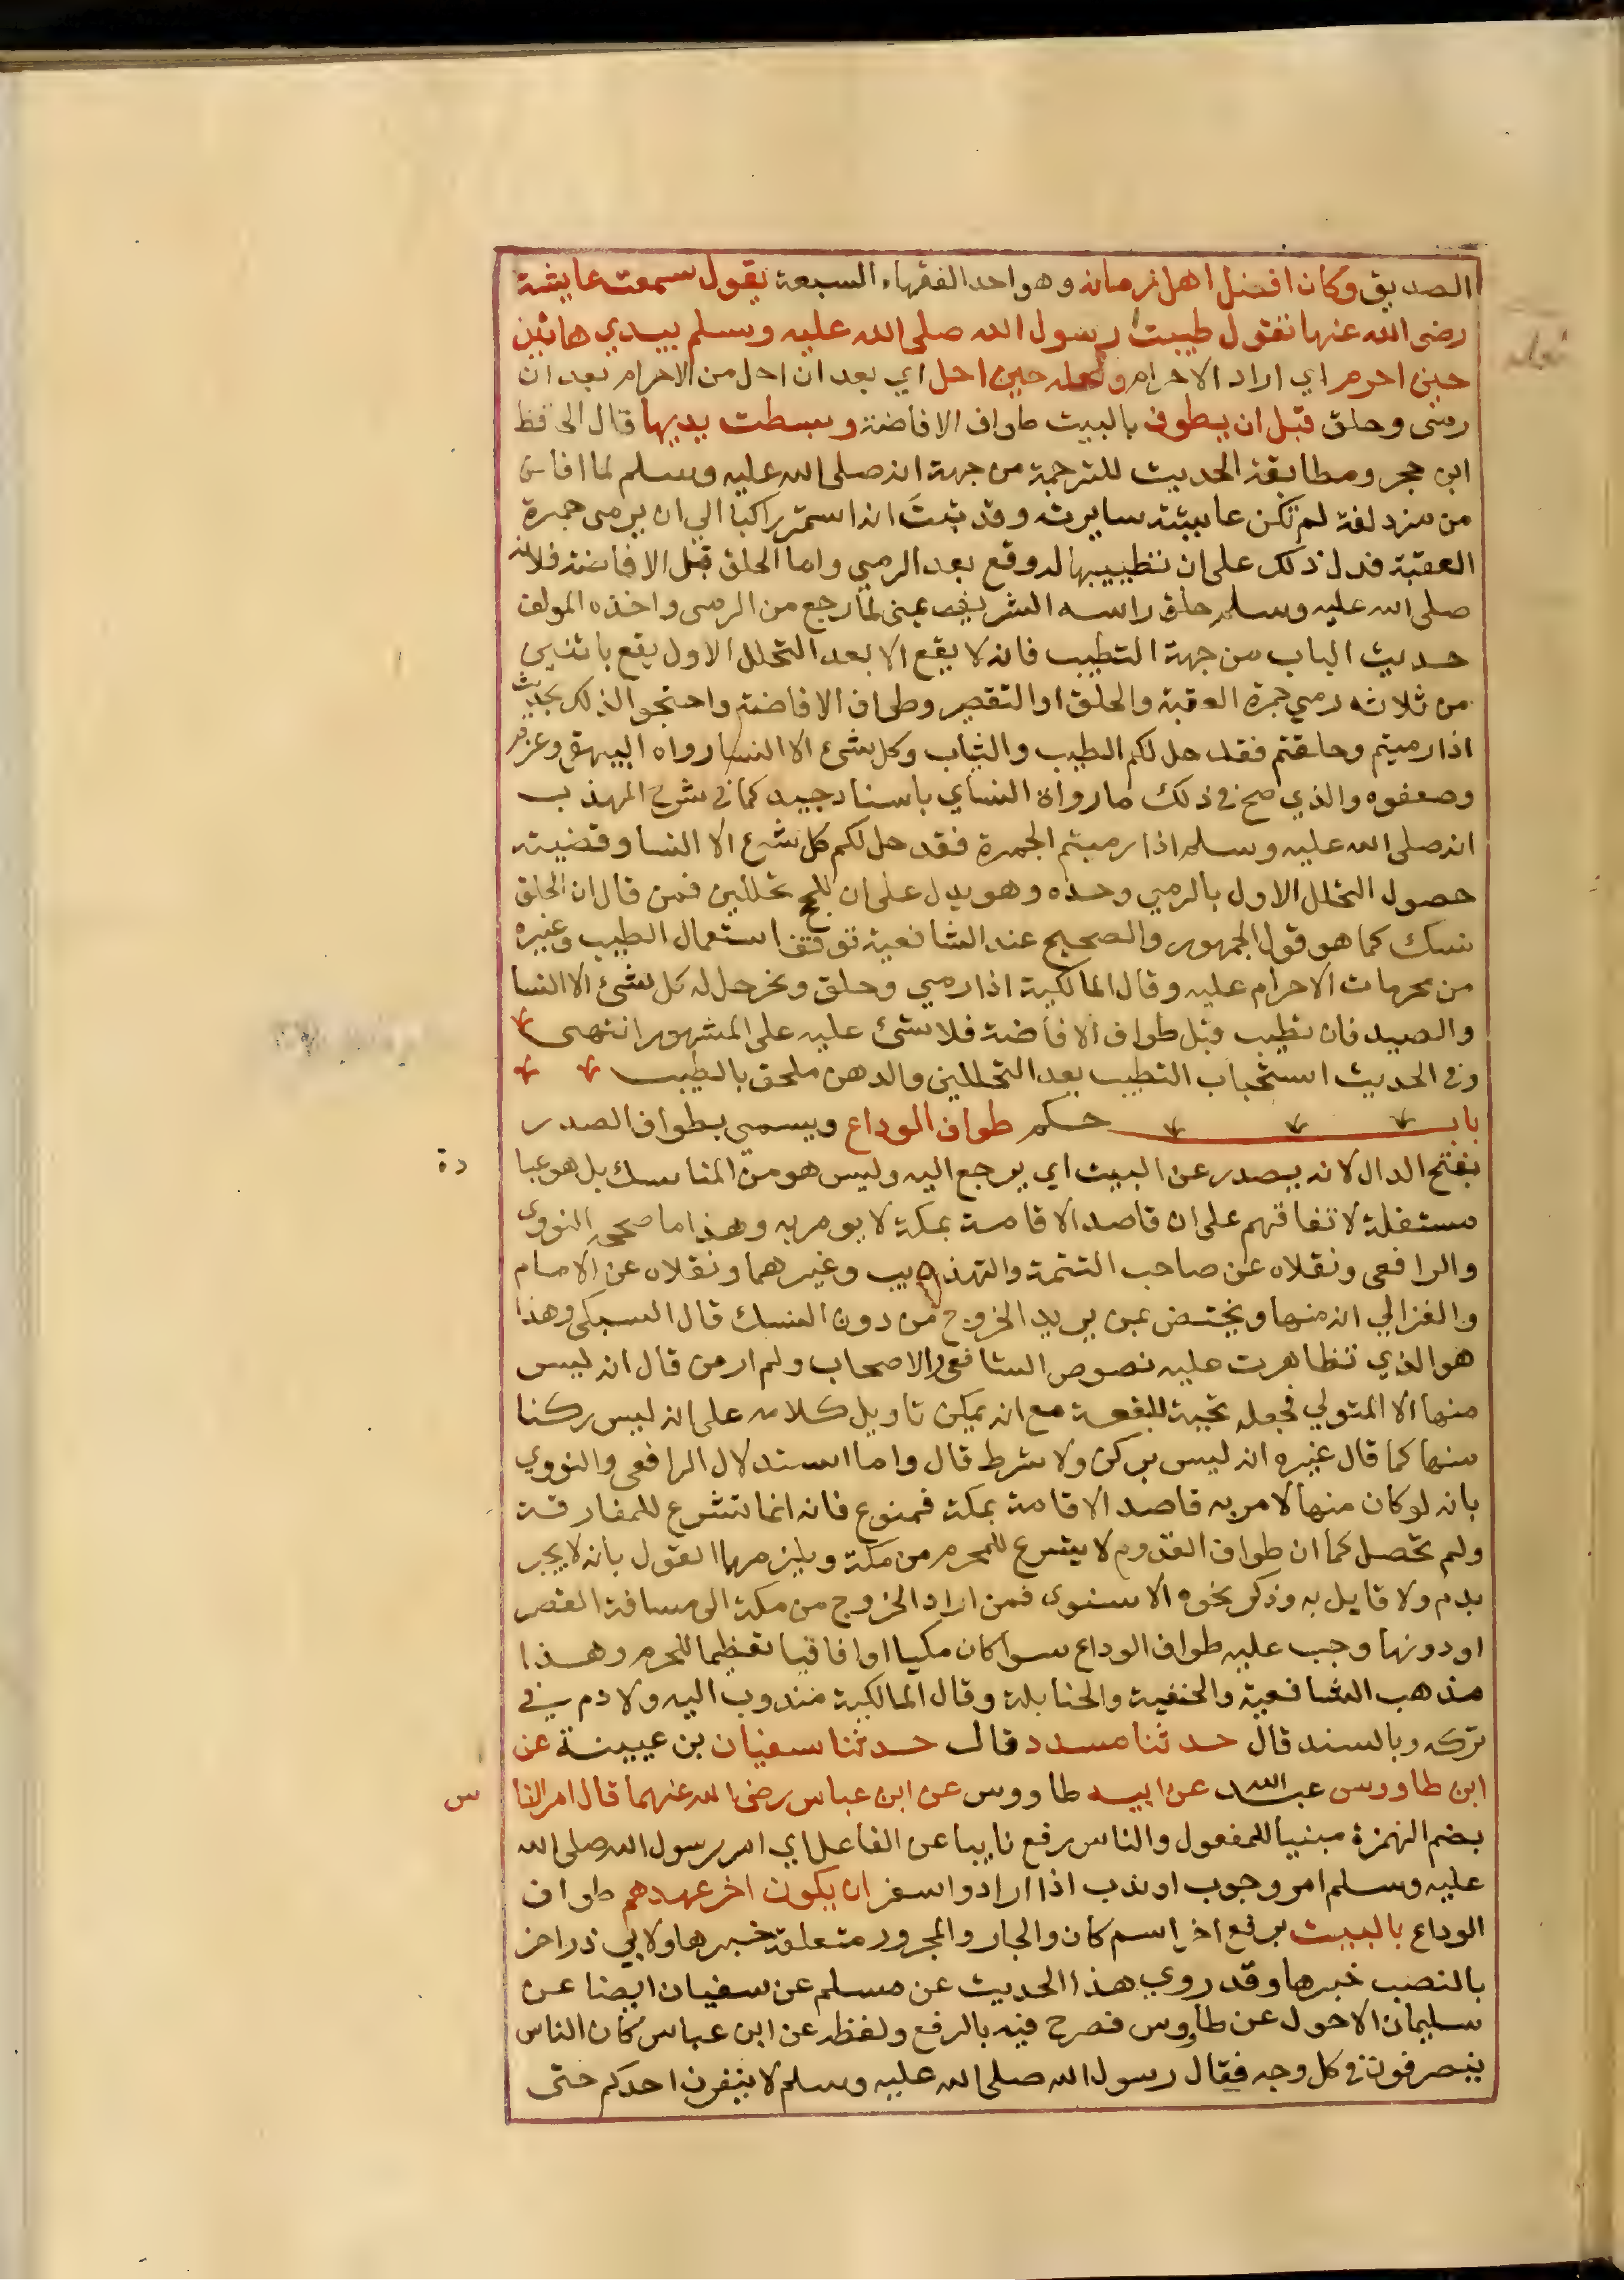 الصديق وكان افضل اهل زمانه وهو احد الفقهاء السبعة يقول سمعت عايشة
رضى الله عنها تقول طيبت رسول الله صلى الله عليه وسلم بيدي هاتين
حين احرم اي اراد الاحرام ولحله حين احل اي بعد ان احل من الاحرام بعد ان
رمى وحلق قبل ان يطوف بالبيت طواف الافاضة وبسطت يديها قال الحافظ
ابن حجر ومطابقة الحديث للترجمة من جهة انه صلى الله عليه وسلم لما افاض
من مزدلفة لم تكن عايشة سايرته وقد ثبت انه استمر راكبا الي ان يرمى جمرة
العقبة فدل ذلك على ان تطييبها له وقع بعد الرمي واما الحلق قبل الافاضة فلانه
صلى الله عليه وسلم حلق راسه الشريف بمنى لما رجع من الرمى واخذه المولف
حديث الباب من جهة التطيب فانه لا يقع الا بعد التحلل الاول يقع باثنين
من ثلاثه رمي جمرة العقبة والحلق او التقصير وطواف الافاضة واحتجوا لذلك بحديث
اذا رميتم وحلقتم فقد حل لكم الطيب والثياب وكل شئ الا النسا رواه البيهقى وغيره
وضعفوه والذي صح في ذلك ما رواه النساي باسناد جيد كما في شرح المهذب
انه صلى الله عليه وسلم اذا رميتم الجمرة فقد حل لكم كل شئ الا النسا وقضيته
حصول التحلل الاول بالرمي وحده وهو يدل على ان للحج تحللين فمن قال ان الحلق
نسك كما هو قول الجمهور والصحيح عند الشافعية توقف استعمال الطيب وغيره
من محرمات الاحرام عليه وقال المالكية اذا رمي وحلق ونحر حل له كل شئ الا النسا
والصيد فان تطيب قبل طواف الافاضة فلا شئ عليه على المشهور انتهى
وفي الحديث استحباب التطيب بعد التحللين والدهن ملحق بالطيب
باب حكم طواف الوداع ويسمى بطواف الصدر
بفتح الدال لانه يصدر عن البيت اي يرجع اليه وليس هو من المناسك بل هو عبا دة
مستقلة لاتفاقهم على ان قاصد الاقامة بمكة لا يومر به وهذا ما صححه النووى
والرافعى ونقلاه عن صاحب التتمة والتهذيب وغيرهما ونقلاه عن الامام
والغزالي انه منها ويختص بمن يريد الخروج من دون النسك قال السبكى وهذا
هو الذي تظاهرت عليه نصوص الشافعى والاصحاب ولم ار من قال انه ليس
منها الا المتولي فجعله تحية للبقعة مع انه يمكن تاويل كلامه على انه ليس ركنا
منها كما قال غيره انه ليس بركن ولا شرط قال واما استدلال الرافعى والنووي
بانه لو كان منها لامر به قاصد الاقامة بمكة فممنوع فانه انما تشرع للمفارقة
ولم تحصل كما ان طواف القدوم لا يشرع للمحرم من مكة ويلزمهما القول بانه لا يجبر
بدم ولا قايل به وذكر نحوه الاسنوى فمن اراد الخروج من مكة الى مسافة القصر
او دونها وجب عليه طواف الوداع سوا كان مكيا او افاقيا تعظيما للحرم وهذا
مذهب الشافعية والحنفية والحنابلة وقال المالكية مندوب اليه ولا دم في
تركه وبالسند قال حدثنا مسدد قال حدثنا سفيان بن عيينة عن
ابن طاووس عبد الله عن ابيه طاووس عن ابن عباس رضى الله عنهما قال امر النا س
بضم الهمزة مبنيا للمفعول والناس رفع نايبا عن الفاعل اي امر رسول الله صلى الله
عليه وسلم امر وجوب او ندب اذا ارادوا سفر ان يكون اخر عهدهم طواف
الوداع بالبيت برفع اخر اسم كان والجار والمجرور متعلقه خبرها ولابي ذر اخر
بالنصب خبرها وقد روي هذا الحديث عن مسلم عن سفيان ايضا عن
سليمان الاحول عن طاووس فصرح فيه بالرفع ولفظه عن ابن عباس كان الناس
ينصرفون في كل وجه فقال رسول الله صلى الله عليه وسلم لا ينفرن احدكم حتى